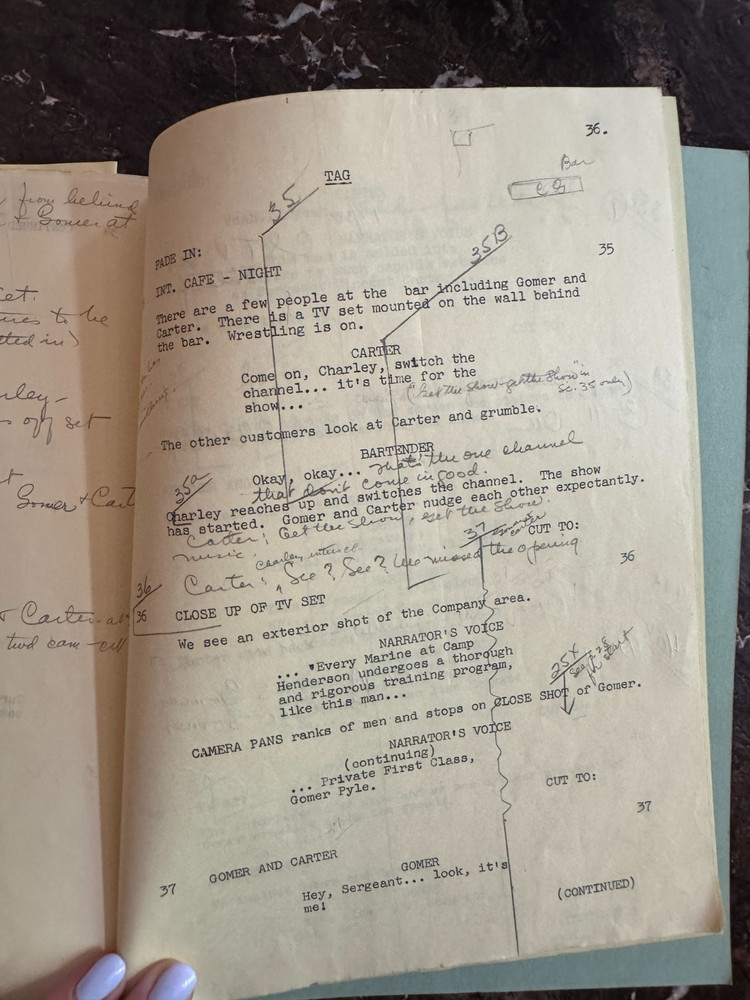 36.
Bar
TAG
35
from behind
Gomer at
35B
FADE IN:
35
INT. CAFE - NIGHT
There are a few people at the bar including Gomer and
Carter. There is a TV set mounted on the wall behind
the bar. Wrestling is on.
CARTER
Come on, Charley, switch the
channel... it's time for the
show...
("Get the show-get the show" in
Sc. 35 only)
The other customers look at Carter and grumble.
BARTENDER
Okay, okay... That's the one channel
that don't come in good.
35a
Charley reaches up and switches the channel. The show
has started. Gomer and Carter nudge each other expectantly.
Carter: Get the show, get the show.
music.
37
CUT TO:
Carter: See? See? We missed the opening
36
36
36
CLOSE UP OF TV SET
We see an exterior shot of the Company area.
NARRATOR'S VOICE
... "Every Marine at Camp
Henderson undergoes a thorough
and rigorous training program,
like this man...
25X
start
CAMERA PANS ranks of men and stops on CLOSE SHOT of Gomer.
NARRATOR'S VOICE
(continuing)
... Private First Class,
Gomer Pyle.
CUT TO:
37
37 GOMER AND CARTER
GOMER
Hey, Sergeant... look, it's
me!
(CONTINUED)
to be
off set
Gomer + Cart
Carter
two cam